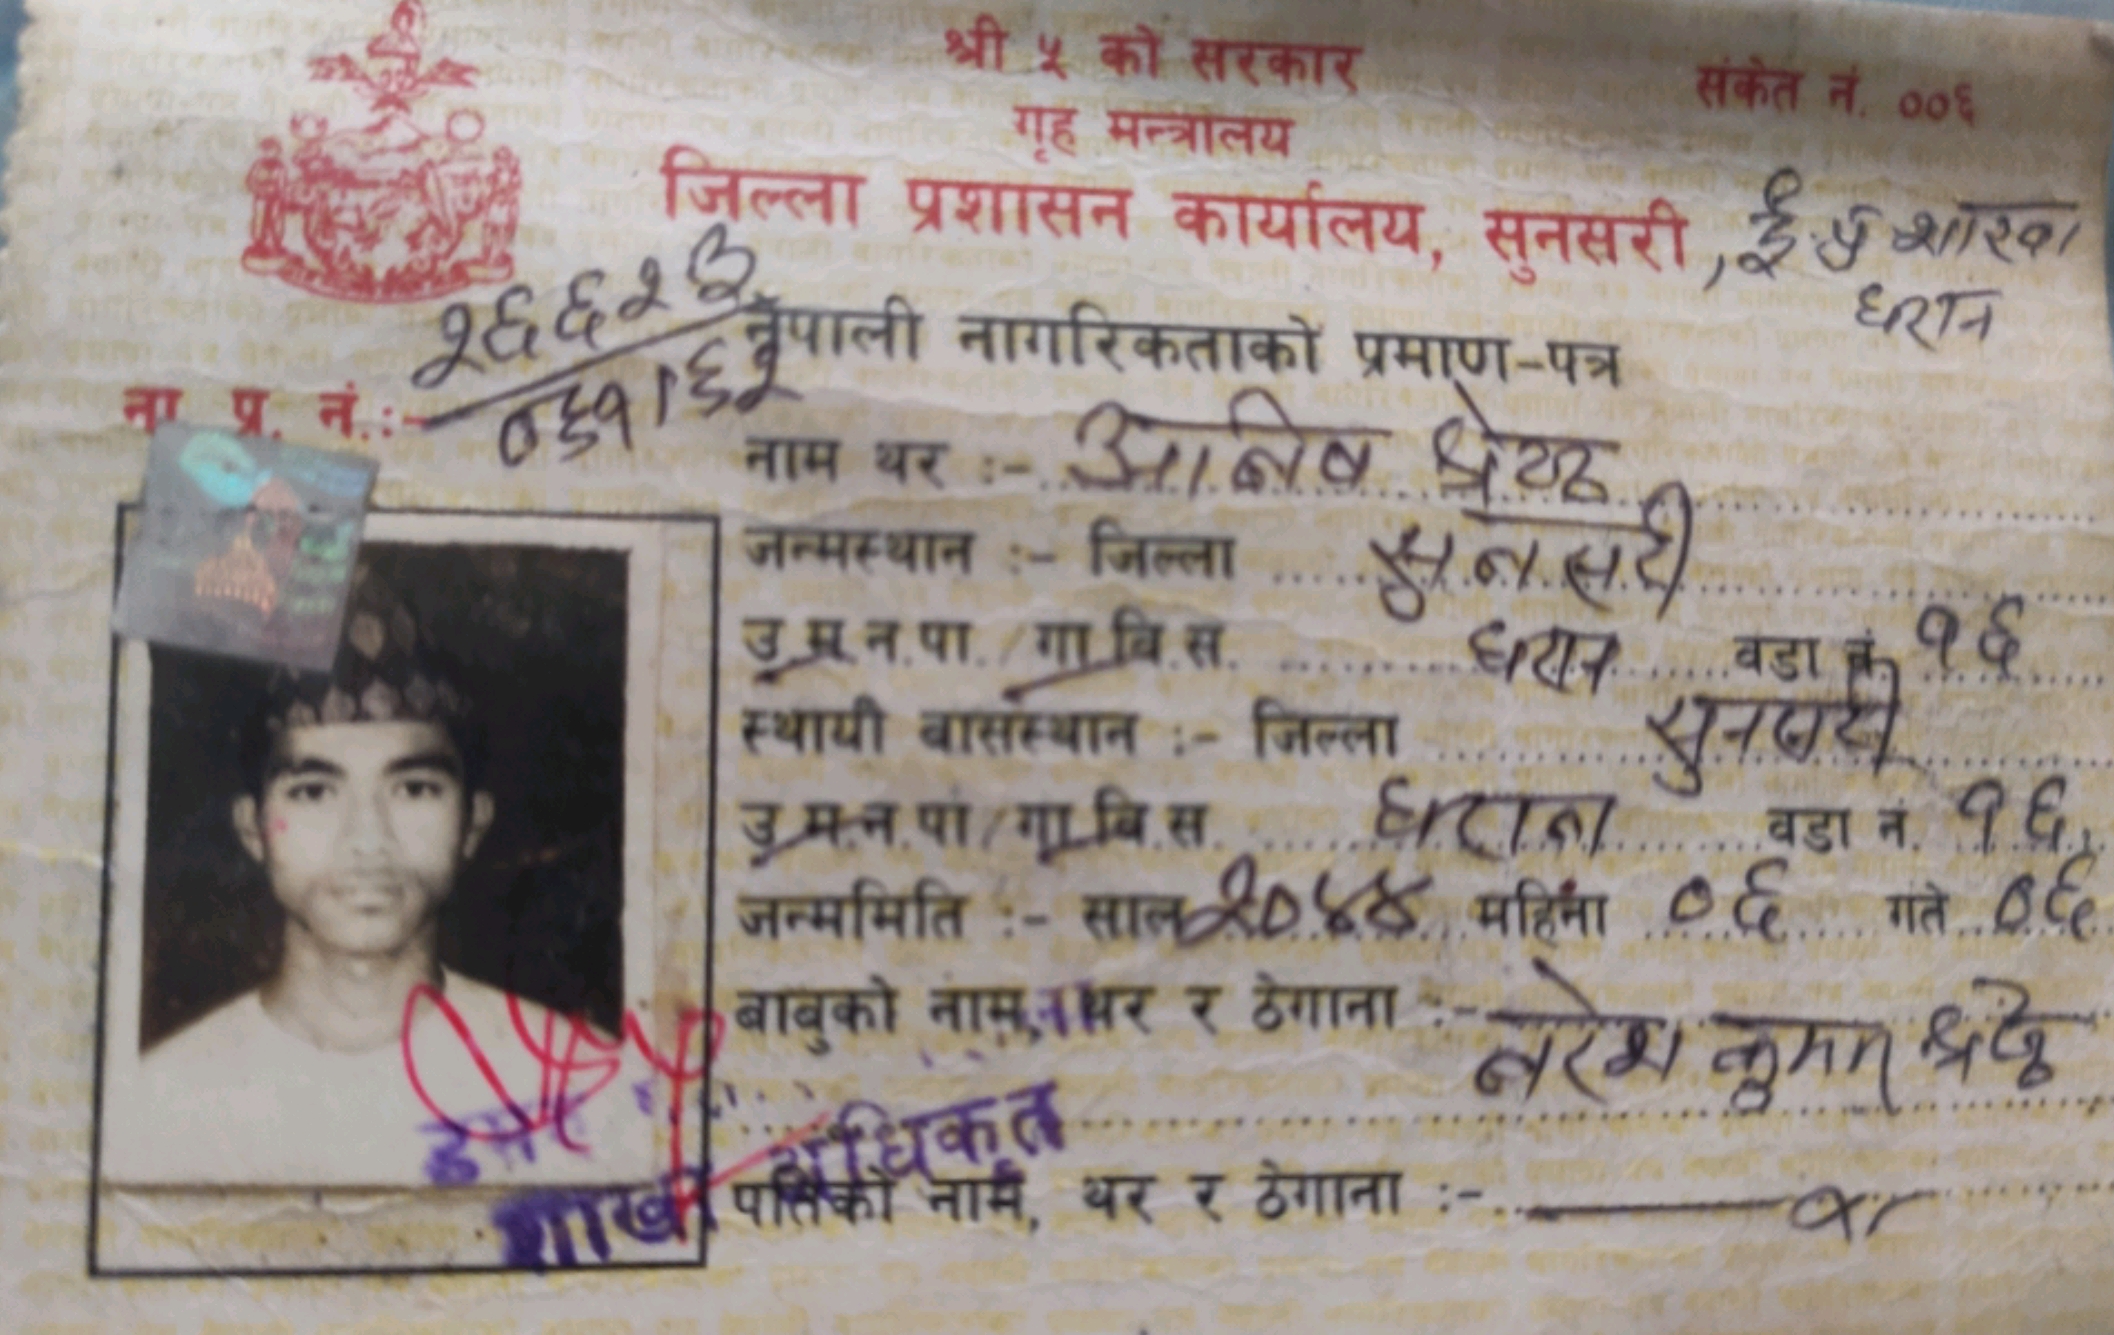 श्री ५ को सरकार
संकेत नं. ००६
गृह मन्त्रालय
जिल्ला प्रशासन कार्यालय, सुनसरी, ई.प्र शाखा
धरान
नेपाली नागरिकताको प्रमाण-पत्र
ना. प्र. नं.:-
नाम थर :- आनिष श्रेष्ठ
जन्मस्थान :- जिल्ला सुनसरी
उ.म.न.पा./गा.वि.स. धरान वडा नं. १६
स्थायी बासस्थान :- जिल्ला सुनसरी
उ.म.न.पा/गा.वि.स धरान वडा नं. १६
जन्ममिति :- साल २०४४ महिना ०६ गते ०६
बाबुको नाम, थर र ठेगाना :- नरेश कुमार श्रेष्ठ
शाखा अधिकृत
पतिको नाम, थर र ठेगाना :-